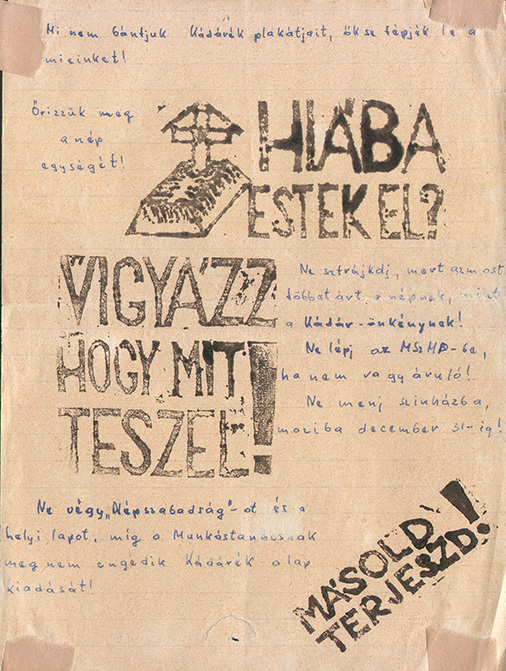 Mi nem bántjuk Kádárék plakátjait, ők se tépjék le a
mieinket!
Őrizzük meg
a nép
egységét!
HIÁBA
ESTEK EL?
VIGYÁZZ
HOGY MIT
TESZEL!
Ne sztrájkolj, mert az most
többet árt a népnek, mint
a Kádár-önkénynek!
Ne lépj az MSzMP-be,
ha nem vagy áruló!
Ne menj szinházba,
moziba december 31-ig!
Ne végy „Népszabadság"-ot és a
helyi lapot, míg a Munkástanácsnak
meg nem engedik Kádárék a lap
kiadását!
MÁSOLD
TERJESZD!